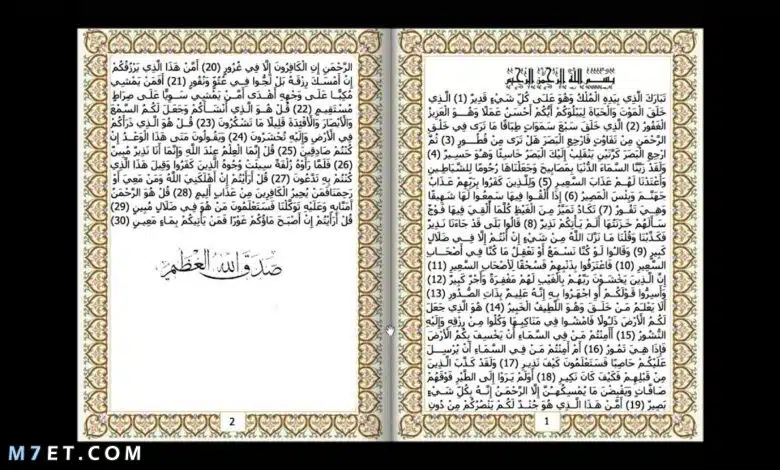 بسم الله الرحمن الرحيم
تَبَارَكَ الَّذِي بِيَدِهِ الْمُلْكُ وَهُوَ عَلَى كُلِّ شَيْءٍ قَدِيرٌ (1) الَّذِي
خَلَقَ الْمَوْتَ وَالْحَيَاةَ لِيَبْلُوَكُمْ أَيُّكُمْ أَحْسَنُ عَمَلًا وَهُوَ الْعَزِيزُ
الْغَفُورُ (2) الَّذِي خَلَقَ سَبْعَ سَمَوَاتٍ طِبَاقًا مَا تَرَى فِي خَلْقِ
الرَّحْمَنِ مِنْ تَفَاوُتٍ فَارْجِعِ الْبَصَرَ هَلْ تَرَى مِنْ فُطُورٍ (3) ثُمَّ
ارْجِعِ الْبَصَرَ كَرَّتَيْنِ يَنْقَلِبْ إِلَيْكَ الْبَصَرُ خَاسِئًا وَهُوَ حَسِيرٌ (4)
وَلَقَدْ زَيَّنَّا السَّمَاءَ الدُّنْيَا بِمَصَابِيحَ وَجَعَلْنَاهَا رُجُومًا لِلشَّيَاطِينِ
وَأَعْتَدْنَا لَهُمْ عَذَابَ السَّعِيرِ (5) وَلِلَّذِينَ كَفَرُوا بِرَبِّهِمْ عَذَابُ
جَهَنَّمَ وَبِئْسَ الْمَصِيرُ (6) إِذَا أُلْقُوا فِيهَا سَمِعُوا لَهَا شَهِيقًا
وَهِيَ تَفُورُ (7) تَكَادُ تَمَيَّزُ مِنَ الْغَيْظِ كُلَّمَا أُلْقِيَ فِيهَا فَوْجٌ
سَأَلَهُمْ خَزَنَتُهَا أَلَمْ يَأْتِكُمْ نَذِيرٌ (8) قَالُوا بَلَى قَدْ جَاءَنَا نَذِيرٌ
فَكَذَّبْنَا وَقُلْنَا مَا نَزَّلَ اللَّهُ مِنْ شَيْءٍ إِنْ أَنْتُمْ إِلَّا فِي ضَلَالٍ
كَبِيرٍ (9) وَقَالُوا لَوْ كُنَّا نَسْمَعُ أَوْ نَعْقِلُ مَا كُنَّا فِي أَصْحَابِ
السَّعِيرِ (10) فَاعْتَرَفُوا بِذَنْبِهِمْ فَسُحْقًا لِأَصْحَابِ السَّعِيرِ (11)
إِنَّ الَّذِينَ يَخْشَوْنَ رَبَّهُمْ بِالْغَيْبِ لَهُمْ مَغْفِرَةٌ وَأَجْرٌ كَبِيرٌ (12)
وَأَسِرُّوا قَوْلَكُمْ أَوِ اجْهَرُوا بِهِ إِنَّهُ عَلِيمٌ بِذَاتِ الصُّدُورِ (13)
أَلَا يَعْلَمُ مَنْ خَلَقَ وَهُوَ اللَّطِيفُ الْخَبِيرُ (14) هُوَ الَّذِي جَعَلَ
لَكُمُ الْأَرْضَ ذَلُولًا فَامْشُوا فِي مَنَاكِبِهَا وَكُلُوا مِنْ رِزْقِهِ وَإِلَيْهِ
النُّشُورُ (15) أَأَمِنْتُمْ مَنْ فِي السَّمَاءِ أَنْ يَخْسِفَ بِكُمُ الْأَرْضَ
فَإِذَا هِيَ تَمُورُ (16) أَمْ أَمِنْتُمْ مَنْ فِي السَّمَاءِ أَنْ يُرْسِلَ
عَلَيْكُمْ حَاصِبًا فَسَتَعْلَمُونَ كَيْفَ نَذِيرِ (17) وَلَقَدْ كَذَّبَ الَّذِينَ
مِنْ قَبْلِهِمْ فَكَيْفَ كَانَ نَكِيرِ (18) أَوَلَمْ يَرَوْا إِلَى الطَّيْرِ فَوْقَهُمْ
صَافَّاتٍ وَيَقْبِضْنَ مَا يُمْسِكُهُنَّ إِلَّا الرَّحْمَنُ إِنَّهُ بِكُلِّ شَيْءٍ
بَصِيرٌ (19) أَمَّنْ هَذَا الَّذِي هُوَ جُنْدٌ لَكُمْ يَنْصُرُكُمْ مِنْ دُونِ
1
الرَّحْمَنِ إِنِ الْكَافِرُونَ إِلَّا فِي غُرُورٍ (20) أَمَّنْ هَذَا الَّذِي يَرْزُقُكُمْ
إِنْ أَمْسَكَ رِزْقَهُ بَلْ لَجُّوا فِي عُتُوٍّ وَنُفُورٍ (21) أَفَمَنْ يَمْشِي
مُكِبًّا عَلَى وَجْهِهِ أَهْدَى أَمَّنْ يَمْشِي سَوِيًّا عَلَى صِرَاطٍ
مُسْتَقِيمٍ (22) قُلْ هُوَ الَّذِي أَنْشَأَكُمْ وَجَعَلَ لَكُمُ السَّمْعَ
وَالْأَبْصَارَ وَالْأَفْئِدَةَ قَلِيلًا مَا تَشْكُرُونَ (23) قُلْ هُوَ الَّذِي ذَرَأَكُمْ
فِي الْأَرْضِ وَإِلَيْهِ تُحْشَرُونَ (24) وَيَقُولُونَ مَتَى هَذَا الْوَعْدُ إِنْ
كُنْتُمْ صَادِقِينَ (25) قُلْ إِنَّمَا الْعِلْمُ عِنْدَ اللَّهِ وَإِنَّمَا أَنَا نَذِيرٌ مُبِينٌ
(26) فَلَمَّا رَأَوْهُ زُلْفَةً سِيئَتْ وُجُوهُ الَّذِينَ كَفَرُوا وَقِيلَ هَذَا الَّذِي
كُنْتُمْ بِهِ تَدَّعُونَ (27) قُلْ أَرَأَيْتُمْ إِنْ أَهْلَكَنِيَ اللَّهُ وَمَنْ مَعِيَ أَوْ
رَحِمَنَافَمَنْ يُجِيرُ الْكَافِرِينَ مِنْ عَذَابٍ أَلِيمٍ (28) قُلْ هُوَ الرَّحْمَنُ
آمَنَّابِهِ وَعَلَيْهِ تَوَكَّلْنَا فَسَتَعْلَمُونَ مَنْ هُوَ فِي ضَلَالٍ مُبِينٍ (29)
قُلْ أَرَأَيْتُمْ إِنْ أَصْبَحَ مَاؤُكُمْ غَوْرًا فَمَنْ يَأْتِيكُمْ بِمَاءٍ مَعِينٍ (30)
صدق الله العظيم
2
M7ET.COM